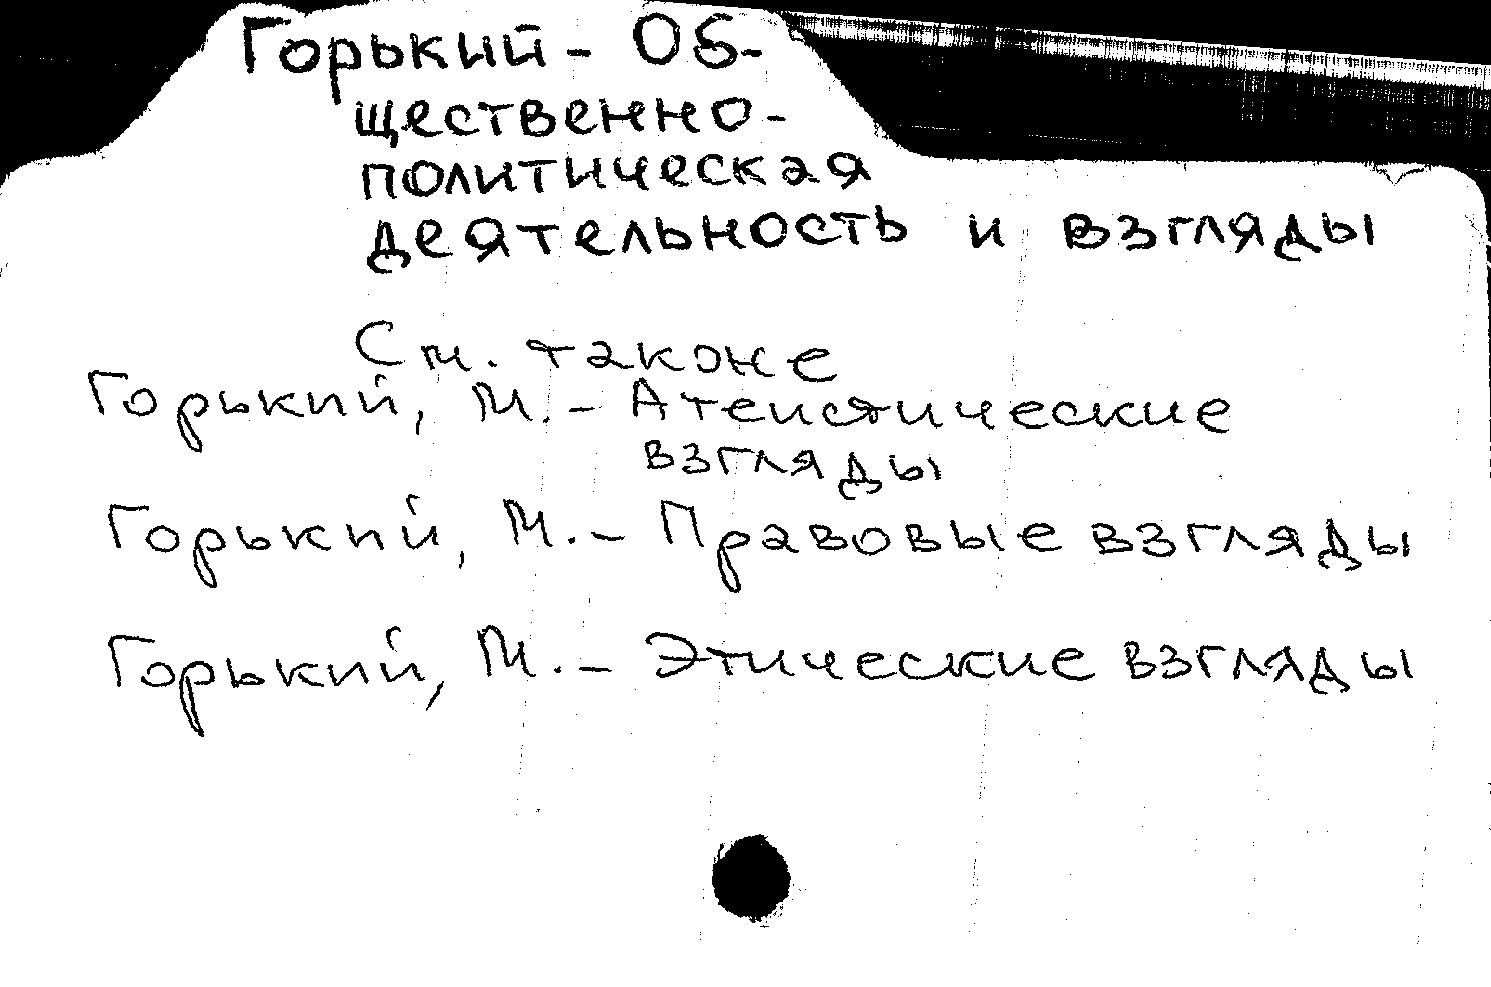 Горький - Об-
щественно-
политическая
деятельность и взгляды
См. также
Горький, М. - Атеистические
взгляды
Горький, М. - Правовые взгляды
Горький, М. - Этические взгляды